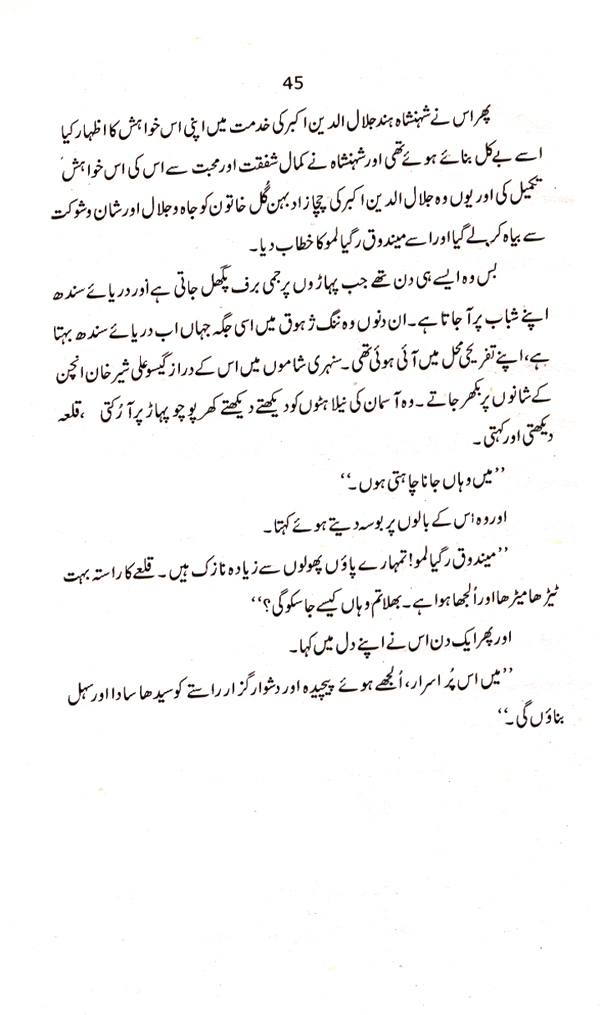 45
پھر اس نے شہنشاہ ہند جلال الدین اکبر کی خدمت میں اپنی اس خواہش کا اظہار کیا
اسے بے کل بنائے ہوئے تھی اور شہنشاہ نے کمال شفقت اور محبت سے اس کی اس خواہش
تکمیل کی اور یوں وہ جلال الدین اکبر کی چچا زاد بہن گُل خاتون کو جاہ و جلال اور شان و شوکت
سے بیاہ کر لے گیا اور اسے میندوق رگیالمو کا خطاب دیا۔
بس وہ ایسے ہی دن تھے جب پہاڑوں پر جمی برف پگھل جاتی ہے اور دریائے سندھ
اپنے شباب پر آ جاتا ہے۔ ان دنوں وہ ننگ ژہوق میں اسی جگہ جہاں اب دریائے سندھ بہتا
ہے، اپنے تفریحی محل میں آئی ہوئی تھی۔ سنہری شاموں میں اس کے دراز گیسو علی شیر خان انچن
کے شانوں پر بکھر جاتے۔ وہ آسمان کی نیلاہٹوں کو دیکھتے دیکھتے کھرپوچو پہاڑ پر آ رُکتی ، قلعہ
دیکھتی اور کہتی۔
’’میں وہاں جانا چاہتی ہوں۔‘‘
اور وہ اس کے بالوں پر بوسہ دیتے ہوئے کہتا۔
’’میندوق رگیالمو! تمہارے پاؤں پھولوں سے زیادہ نازک ہیں۔ قلعے کا راستہ بہت
ٹیڑھا میڑھا اور اُلجھا ہوا ہے۔ بھلا تم وہاں کیسے جا سکو گی؟‘‘
اور پھر ایک دن اس نے اپنے دل میں کہا۔
’’میں اس پُر اسرار، اُلجھے ہوئے پیچیدہ اور دشوار گزار راستے کو سیدھا سادا اور سہل
بناؤں گی۔‘‘